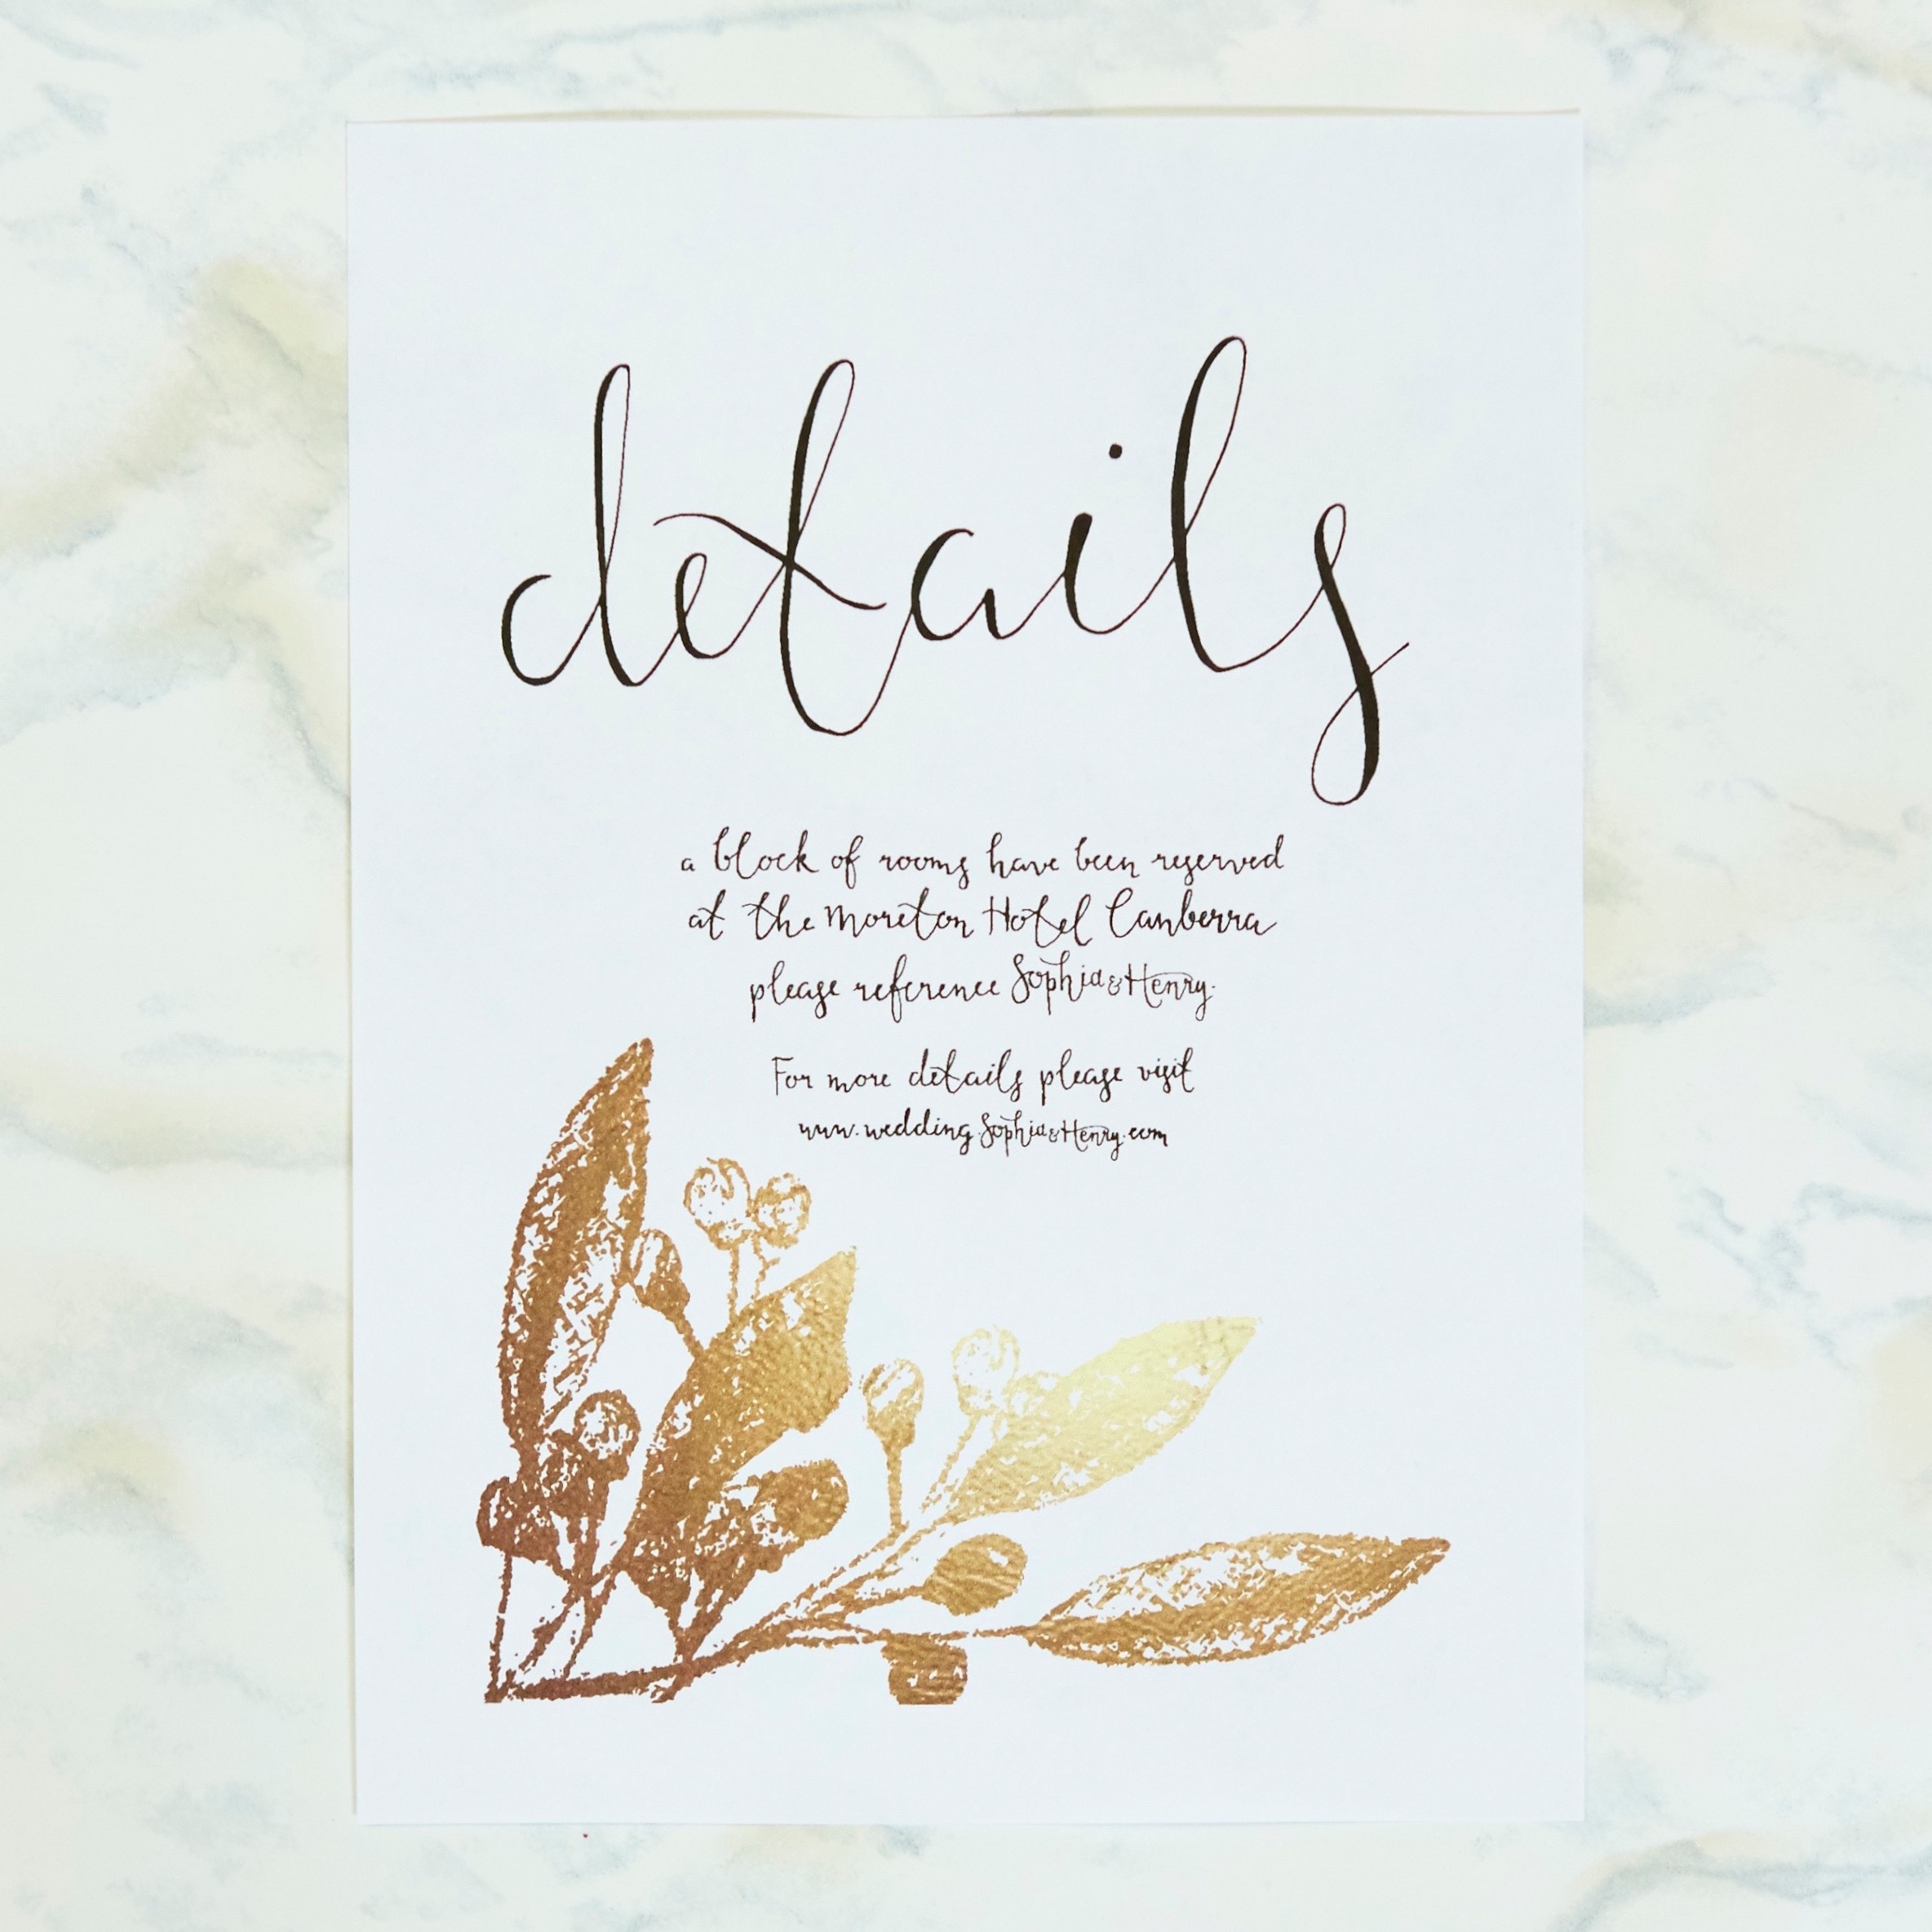 details
a block of rooms have been reserved
at the Moreton Hotel Canberra
please reference Sophia & Henry.
For more details please visit
www.wedding.Sophia&Henry.com